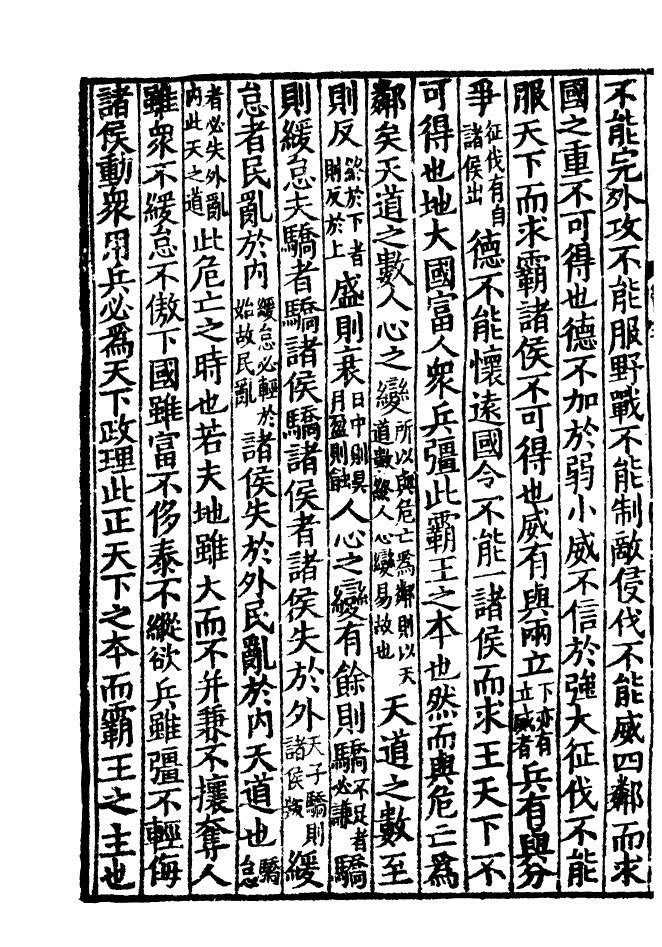 不能完外攻不能服野戰不能制敵侵伐不能威四鄰而求
國之重不可得也德不加於弱小威不信於強大征伐不能
服天下而求霸諸侯不可得也威有與兩立下亦有立威者兵有與分
爭征伐有自諸侯出德不能懷遠國令不能一諸侯而求王天下不
可得也地大國富人衆兵彊此霸王之本也然而與危亡爲
鄰矣天道之數人心之變所以與危亡爲鄰則以天道數終人心變易故也天道之數至
則反終於下者則反於上盛則衰日中則昃月盈則蝕人心之變有餘則驕不足者必謙驕
則緩怠夫驕者驕諸侯驕諸侯者諸侯失於外天子驕則諸侯叛緩
怠者民亂於內緩怠必輕於始故民亂諸侯失於外民亂於內天道也驕怠
者必失外亂內此天之道此危亡之時也若夫地雖大而不并兼不攘奪人
雖衆不緩怠不傲下國雖富不侈泰不縱欲兵雖彊不輕侮
諸侯動衆用兵必爲天下政理此正天下之本而霸王之主也